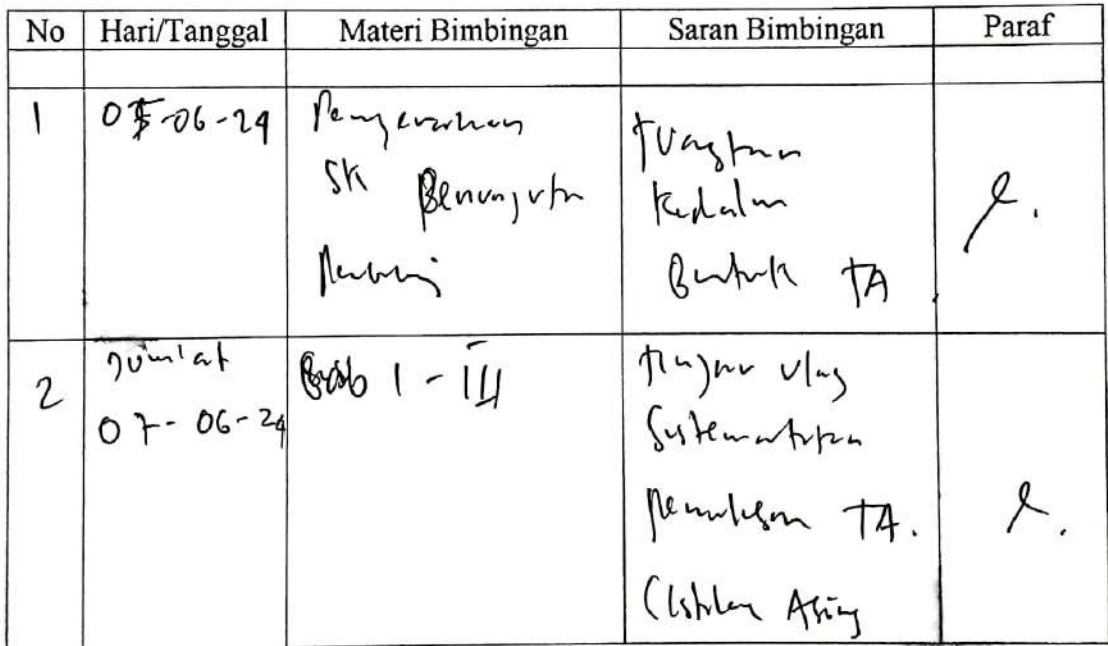 No Hari/Tanggal Materi Bimbingan Saran Bimbingan Paraf
1 05-06-24 Penyerahan
SK
Tuangkan
Kedalam
Bentuk TA
2 Jum'at
07-06-24
Bab I - III
Tinjau ulang
Sistematika
Penulisan TA.
(Istilah Asing